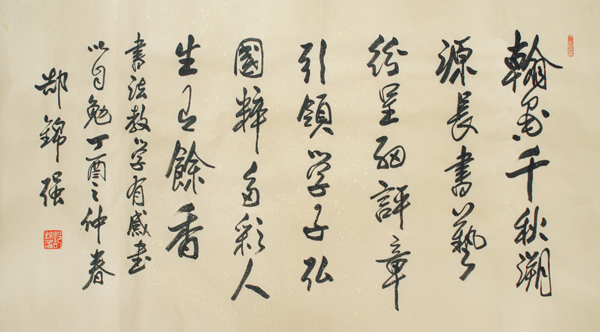 翰墨千秋溯
源長書藝
紛呈細評章
引領學子弘
國粹多彩人
生有餘香
書法教學有感書
以自勉丁酉之仲春
郝錦强